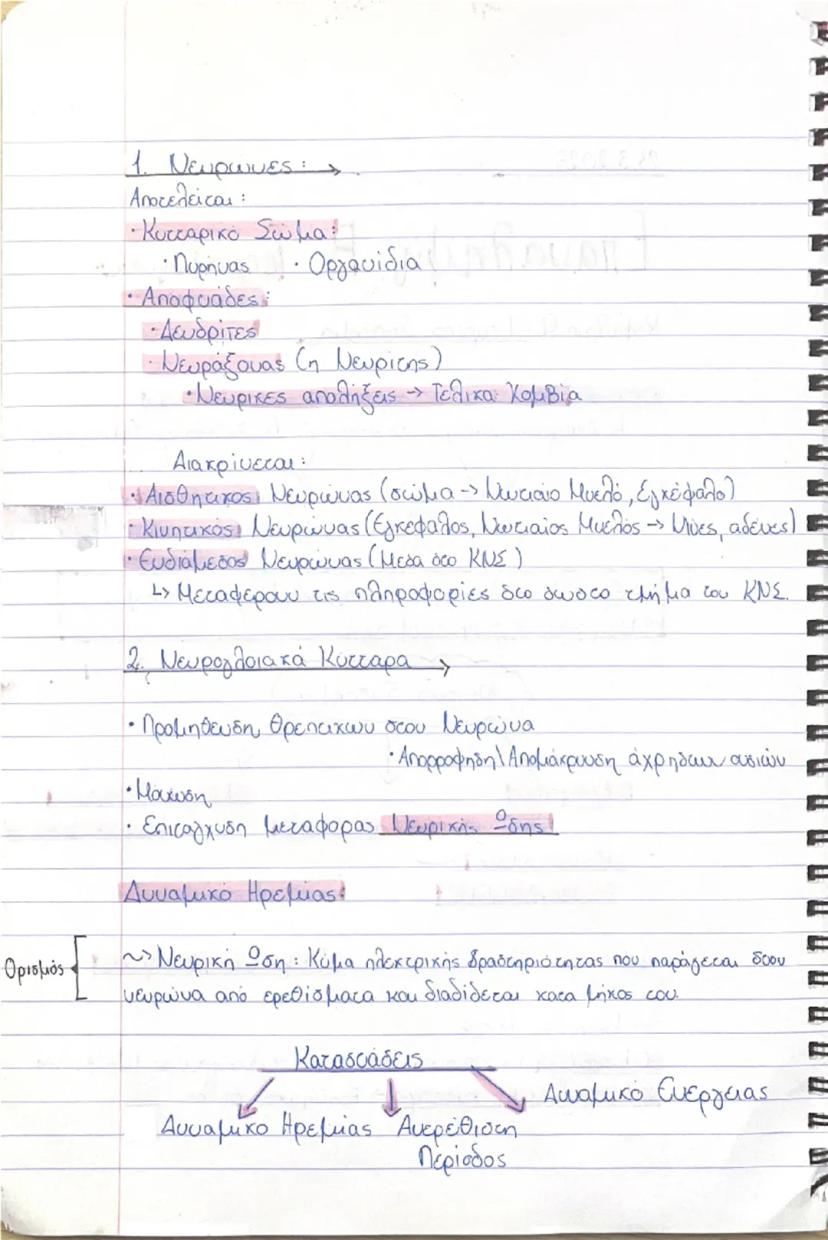 1. Νευρώνες: →
Αποτελείται:
· Κυτταρικό Σώμα:
· Πυρήνας · Οργανίδια
· Αποφυάδες:
· Δενδρίτες
· Νευράξονας (η Νευρίτης)
· Νευρικές απολήξεις → Τελικα Κομβία
Διακρίνεται:
· Αισθητικος Νευρώνας (σώμα → Νωτιαίο Μυελό, Εγκέφαλο)
· Κινητικός Νευρώνας (Εγκέφαλος, Νωτιαίος Μυελός → Μύες, αδένες)
· Ενδιάμεσος Νευρώνας (Μεσα στο ΚΝΣ)
↳ Μεταφέρουν τις πληροφορίες στο σωστο τμήμα του ΚΝΣ.
2. Νευρογλοιακά Κύτταρα →
· Προμήθευση θρεπτικων στον Νευρώνα
· Απορροφηση \ Απομάκρυνση άχρηστων ουσιών
· Μόνωση
· Επιτάχυνση μεταφορας Νευρικής Ωσης
Δυναμικό Ηρεμίας:
Ορισμός
~> Νευρική Ωση: Κύμα ηλεκτρικής δραστηριότητας που παράγεται στον
νευρώνα από ερεθίσματα και διαδίδεται κατα μήκος του.
Καταστάσεις
Δυναμικό Ενεργειας
Δυναμικο Ηρεμίας Ανερέθιστη
Περίοδος